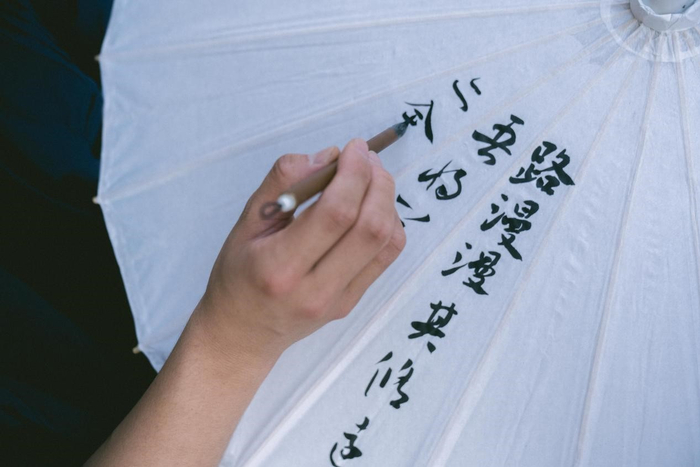 路漫漫其修远
吾将